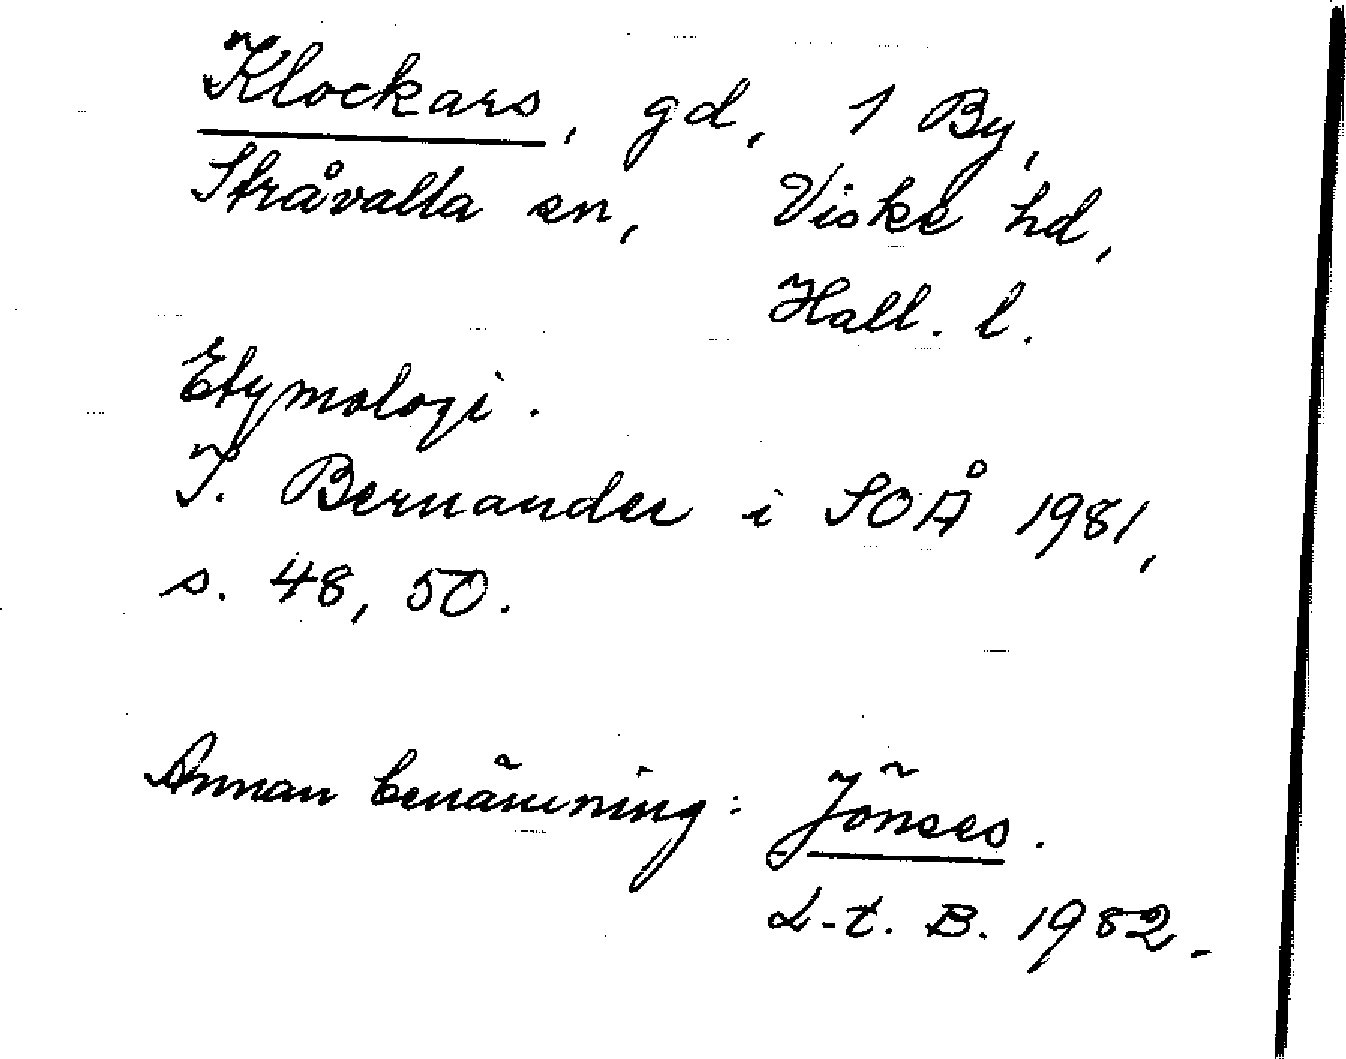 Klockars, gd, 1 By,
Stråvalla sn, Viske hd,
Hall. l.
Etymologi.
I. Bernander i SOÅ 1981,
s. 48, 50.
Annan benämning: Jönses.
L-t. B. 1982.